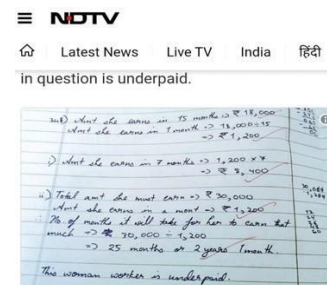 NDTV
Latest News Live TV India हिंदी
in question is underpaid.
Amt she earns in 15 months => ₹ 18,000
Amt she earns in 1 month => 18,000 ÷ 15
=> ₹ 1,200
i) Amt she earns in 7 months => 1,200 × 7
=> ₹ 8,400
ii) Total amt she must earn => ₹ 30,000
Amt she earns in a mont => ₹ 1,200
∴ No. of months it will take for her to earn that
much => 30,000 ÷ 1,200
=> 25 months or 2 years 1 month.
This woman worker is underpaid.